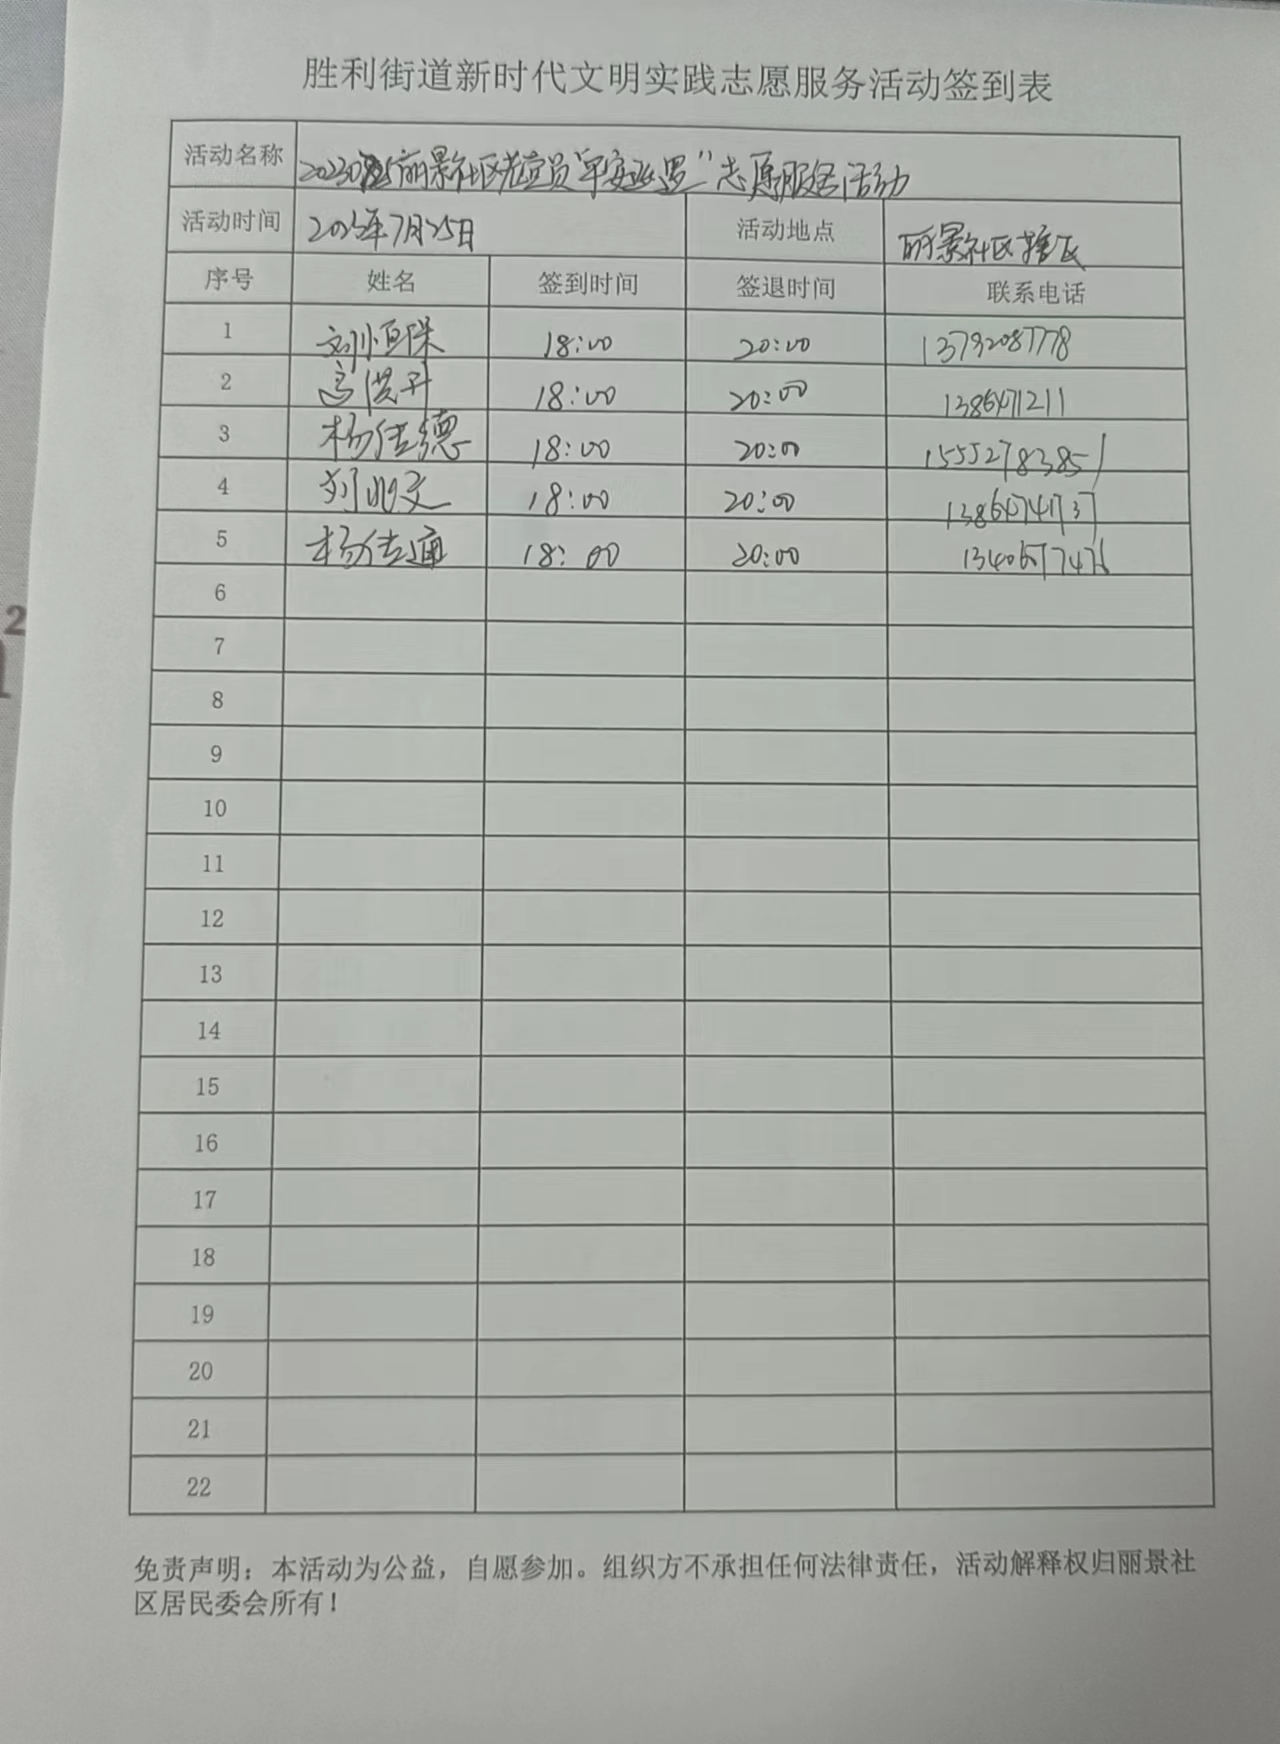 胜利街道新时代文明实践志愿服务活动签到表
活动名称 丽景社区老党员“平安巡逻”志愿服务活动
活动时间 2023年7月25日 活动地点 丽景社区辖区
序号 姓名 签到时间 签退时间 联系电话
1 18:00 20:00 13792087778
2 高洪升 18:00 20:00
3 杨佳德 18:00 20:00 15552783851
4 刘兆文 18:00 20:00
5 杨佳通 18:00 20:00
6
7
8
9
10
11
12
13
14
15
16
17
18
19
20
21
22
免责声明：本活动为公益，自愿参加。组织方不承担任何法律责任，活动解释权归丽景社
区居民委会所有！
2